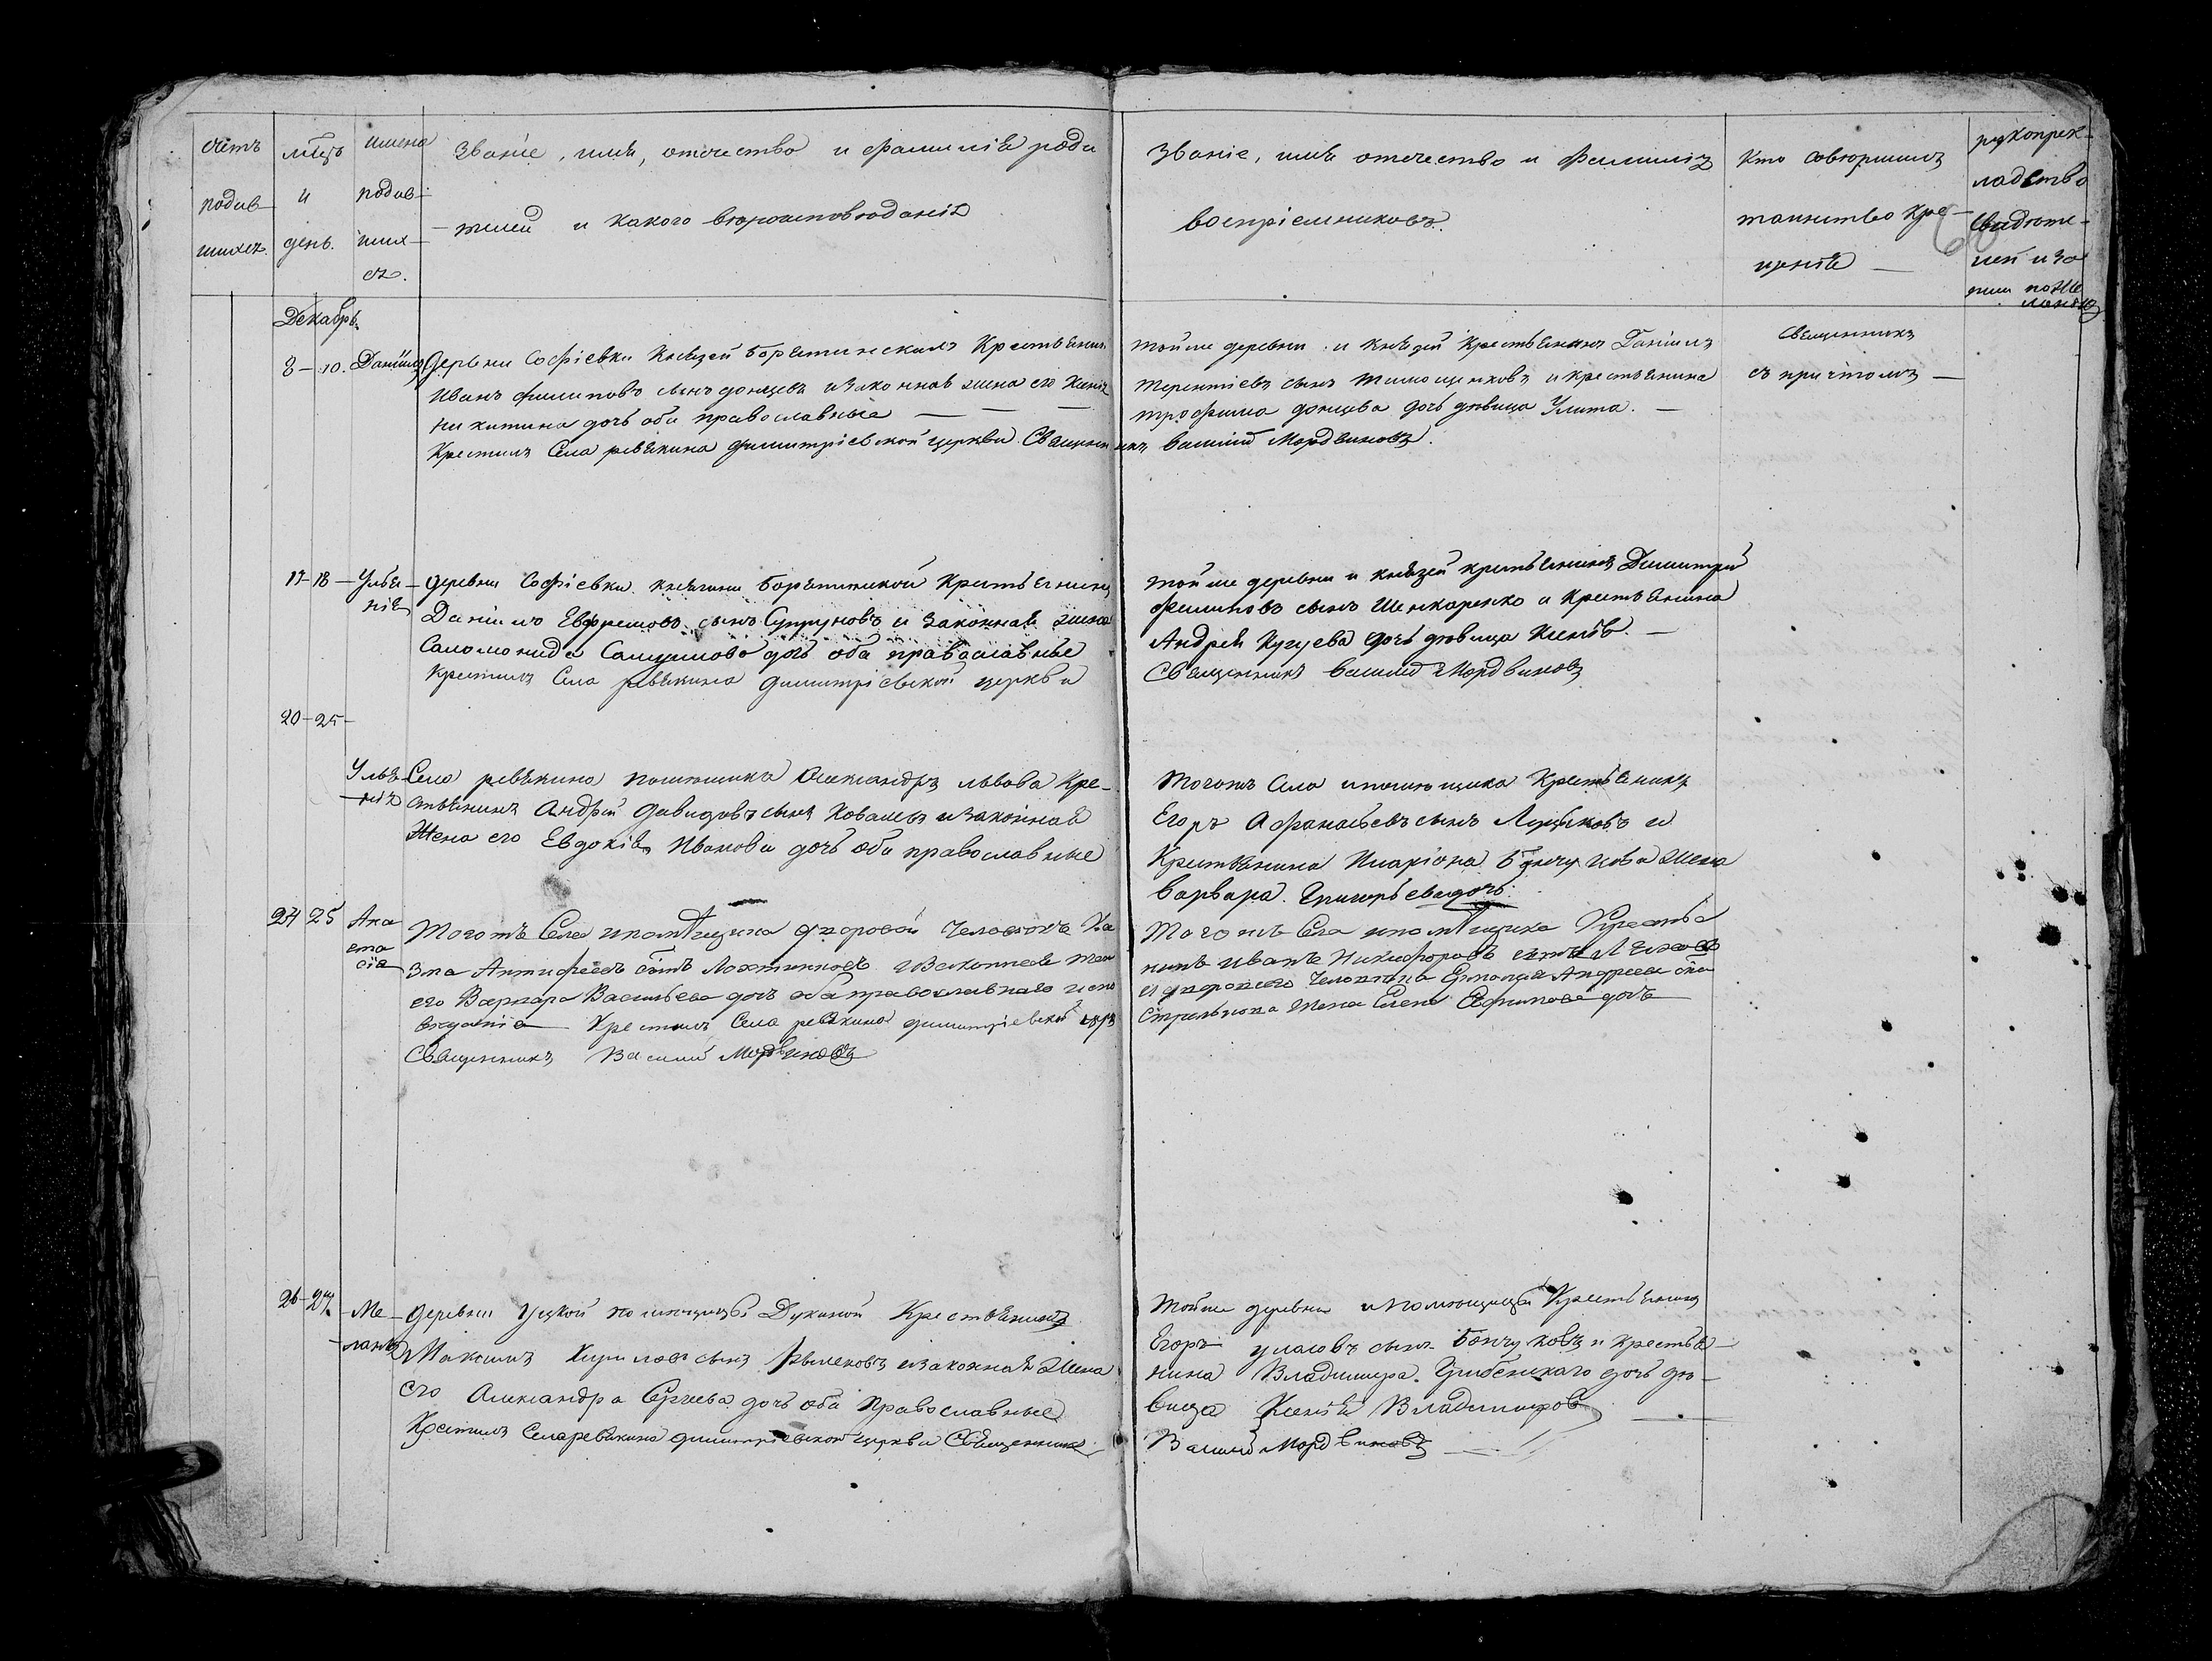 счетъ
родив-
шихся.
мѣсяцъ
и
день.
имена
родив-
ших-
ся.
Званіе, имя, отечество и фамилія роди-
-телей и какого вѣроисповѣданія
Званіе, имя отечество и фамилія
воспріемниковъ.
Кто совершилъ
таинство кре-
щенія —
рукоприк-
ладство
свидѣте-
лей и за-
писи по же-
ланію
Декабрь
8 — 10. Даніилъ Деревни Софіевки Князей Борятинскихъ Крестьянинъ
Иванъ Филиповъ сынъ Донцевъ и законная жена его
Никитина дочь оба православные — — —
Крестилъ Села ревякина Димитріевской церкви Священникъ Василій Мордвиновъ.
тойже деревни и Князей Крестьянинъ Даніилъ
Терентіевъ сынъ Тимощенковъ и крестьянина
Трофима Донцева дочь дѣвица Улита. —
Священникъ
съ причтомъ —
17-18 — Улья-
нія
деревни Софіевки Княгини Борятинской Крестьянинъ
Даніилъ Ефремовъ сынъ Супруновъ и законная жена
Саломонида Самуилова дочь оба православные
Крестилъ Села ревякина Димитріевской церкви
тойже деревни и князей крестьянинъ Димитрій
Филиповъ сынъ Шенкаренко и Крестьянина
Андрея Кугуева дочь дѣвица Ксенія. —
Священникъ Василій Мордвиновъ
20-25-
Улья-
нія
Села ревякина помѣщика Александра Львова Кре-
стьянинъ Андрей Давидовъ сынъ Ковалевъ и законная
Жена его Евдокія Иванова дочь оба православные
Тогожъ Села и помѣщика Крестьянинъ
Егоръ Афанасьевъ сынъ Луциковъ и
Крестьянина Иларіона Бончукова жена
Варвара. Григорьева дочь.
24 25 Ана
ста
сія
Тогожъ Села и помѣщика дворовой Человекъ
Антифеевъ сынъ и Законная Жена
его Варвара Васильева дочь оба православнаго испо
веданія — Крестилъ Села ревякина димитріевской церк
Священникъ Василій Мордвиновъ
Тогожъ Села и помѣщика Крестья
нинъ Иванъ Никифоровъ сынъ
и двороваго Человѣка Андреева сына
Стрельцова Жена Елена Ефимова дочь
26-27 — Ме-
-ланія
деревни Уцкой помѣщицы Дукиной Крестьянинъ
Максимъ Кириловъ сынъ и законная Жена
его Александра Сергеева дочь оба Православные
Крестилъ Села ревякина димитріевской церкви Священникъ
Тойже деревни и помѣщицы Крестьянинъ
Егоръ уласовъ сынъ Бончуковъ и крестья-
нина Владимира Грибенскаго дочь дѣ-
вица Ксенія Владимирова —
Василій Мордвиновъ —